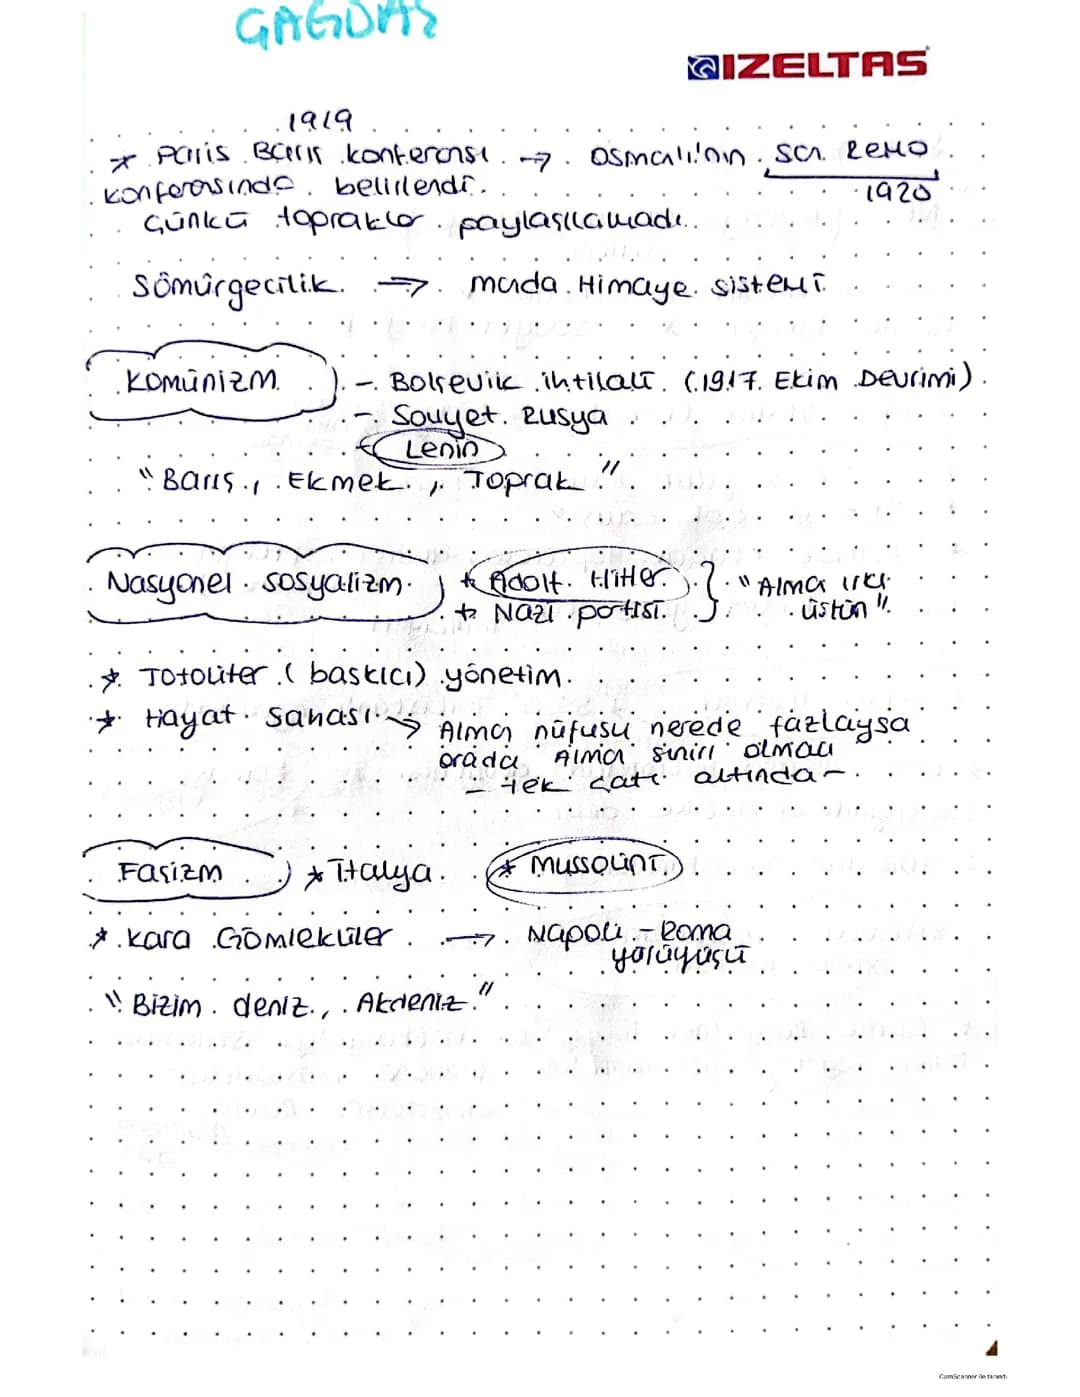 ÇAĞDAŞ
IZELTAS
1919
* Paris Barış konferansı → Osmalı'nın San Remo
konferasında belirlendi. 1920
Çünkü topraklar paylaşılamadı.
Sömürgecilik ⇒ manda Himaye sistemi
Komünizm - Bolşevik ihtilali (1917 Ekim Devrimi)
- Sovyet Rusya
Lenin
"Barış, Ekmek, Toprak"
Nasyonel sosyalizm * Adolf Hitler } "Alman ırkı
* Nazi partisi üstün"
* Totaliter (baskıcı) yönetim
* Hayat sahası → Alman nüfusu nerede fazlaysa
orada Alman sınırı olmalı
- tek çatı altında -
Faşizm * İtalya * Mussolini
* Kara Gömlekliler → Napoli - Roma
yürüyüşü
"Bizim deniz, Akdeniz"
CamScanner ile tarandı